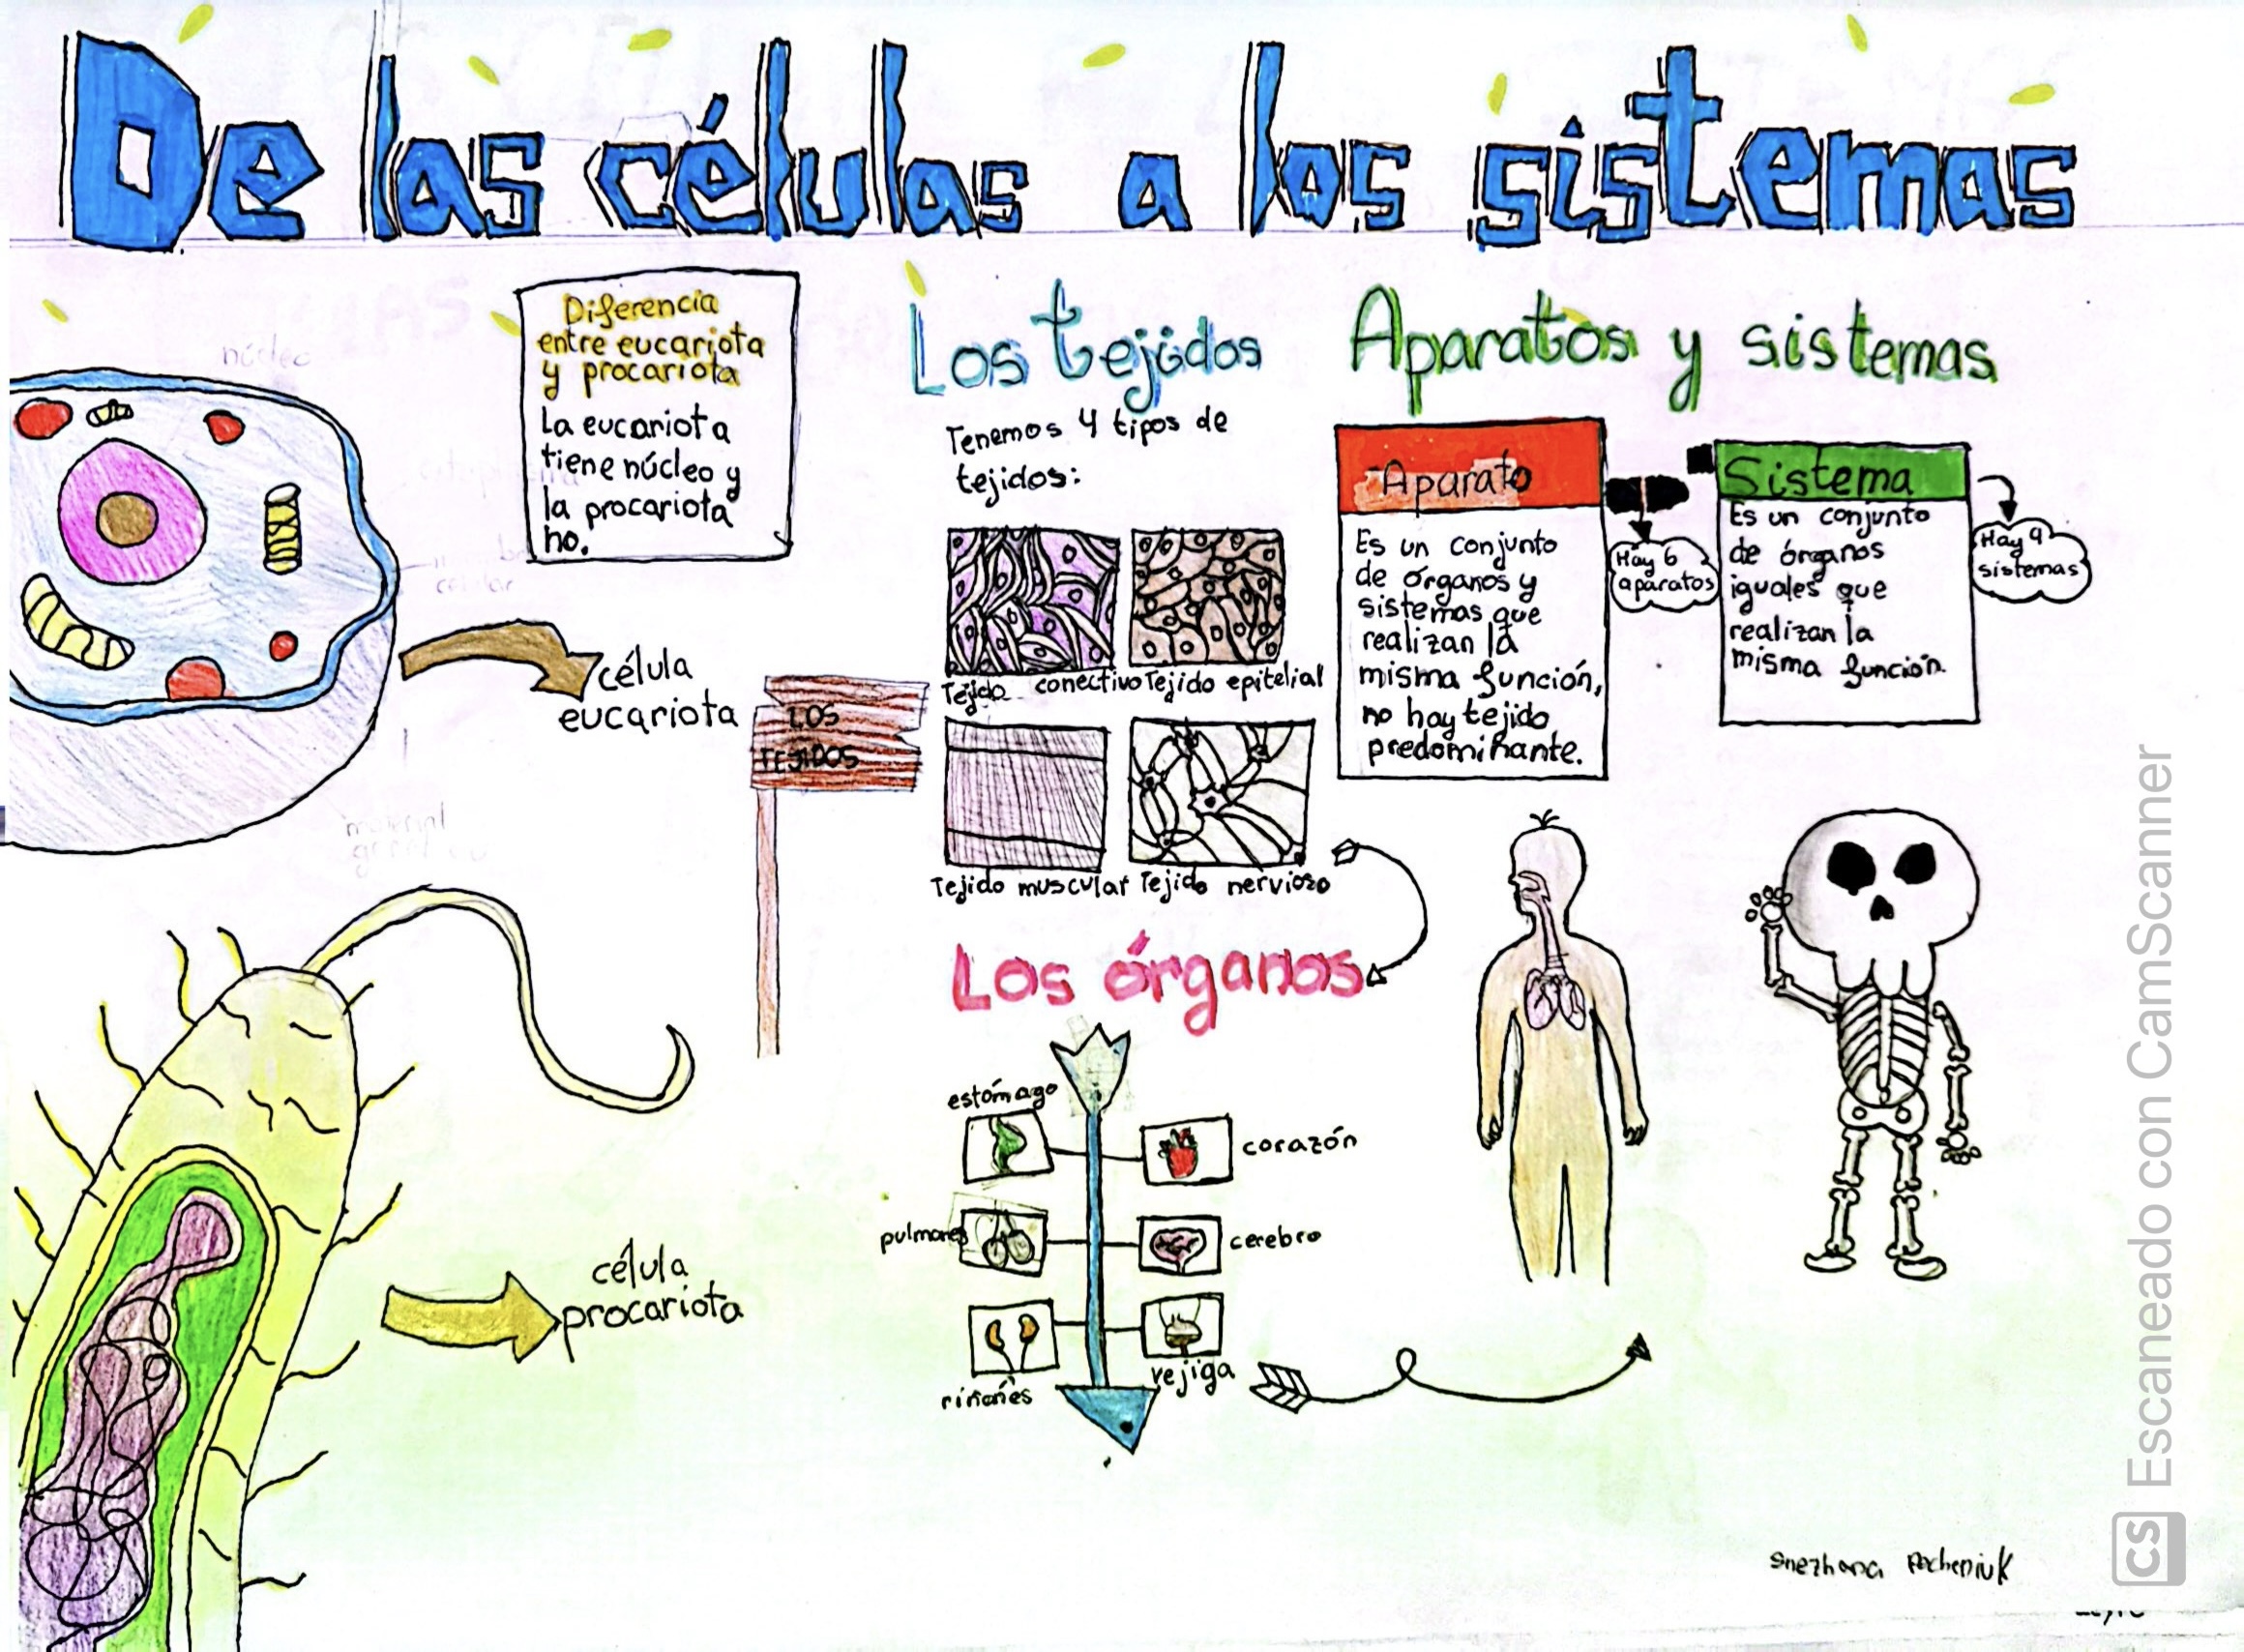 De las células a los sistemas
núcleo
Diferencia
entre eucariota
y procariota
La eucariota
tiene núcleo y
la procariota
no.
celular
material
célula
eucariota
célula
procariota
LOS
TEJIDOS
Los tejidos
Tenemos 4 tipos de
tejidos:
Tejido conectivo
Tejido epitelial
Tejido muscular
Tejido nervioso
Los órganos
estómago
corazón
pulmones
cerebro
riñones
vejiga
Aparatos y sistemas
Aparato
Es un conjunto
de órganos y
sistemas que
realizan la
misma función,
no hay tejido
predominante.
Hay 6
aparatos
Sistema
Es un conjunto
de órganos
iguales que
realizan la
misma función.
Hay 4
sistemas
Snezhana
CS Escaneado con CamScanner